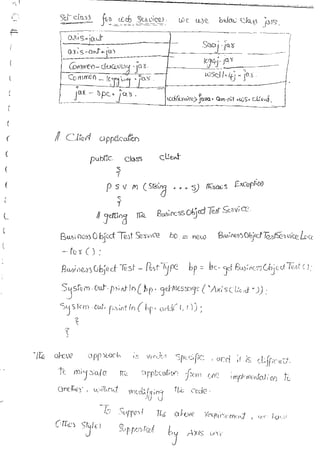 Set class for web services. We use below class jars.
axis-ant.jar
axis-ant.jar
Saaj.jar
Common-discovery.jar
log4j.jar
Common-logging.jar
wsdl-4j.jar
jax-rpc.jar
// Client application
public class client
{
p s v m (String ... s) throws Exception
{
// getting the BusinessObject Test Service
BusinessObject Test Service bo = new BusinessObject TestService Loca
-tor();
BusinessObject Test-Port Type bp = bo.get BusinessObject Test();
System.out.println(bp.getMessage("Axis Client"));
System.out.println(bp.add(1,1));
}
}
The above approach is vendor Specific, and it is difficult
to migrate the application from one implementation to
another, without modifying the code.
To Support the above requirement, we have
Other Styles Supported by Axis